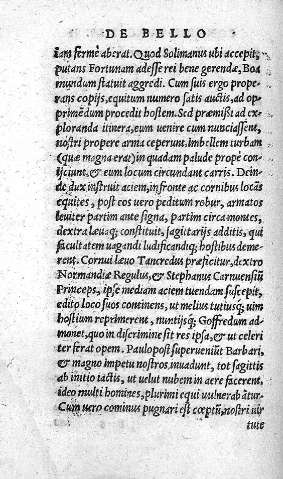 DE BELLO
iam fermè aberat. Quod Solimanus ubi accepit,
putans Fortunam adesse rei bene gerendæ, Boa
mundum statuit aggredi. Cum suis ergo prope=
rans copijs, equitum numero satis auctis, ad op=
primẽdum procedit hostem. Sed præmissi ad ex=
ploranda itinera, eum uenire cum nunciassent,
nostri propere arma ceperunt. Imbellem turbam
(quæ magna erat) in quadam palude propè con=
ijcunt, & eum locum circundant carris. Dein=
de dux instruit aciem, in fronte ac cornibus locãs
equites, post eos uero peditum robur, armatos
leuiter partim ante signa, partim circa montes,
dextra læuaq; constituit, sagittarijs additis, qui
facultatem uagandi ludificandiq; hostibus deme=
rent. Cornui læuo Tancredus præficitur, dextro
Normandiæ Regulus, & Stephanus Carnuensiũ
Princeps, ipse mediam aciem tuendam suscepit,
edito loco suos continens, ut melius tutiusq; uim
hostium reprimerent, nuntijsq; Goffredum ad=
monet, quo in discrimine sit res ipsa, & ut celeri
ter ferat opem. Paulopost superueniũt Barbari,
& magno impetu nostros inuadunt, tot sagittis
ab initio iactis, ut uelut nubem in aere facerent,
ideo multi homines, plurimi equi uulnerabãtur.
Cum uero cominus pugnari est cœptũ, nostri uir
tute